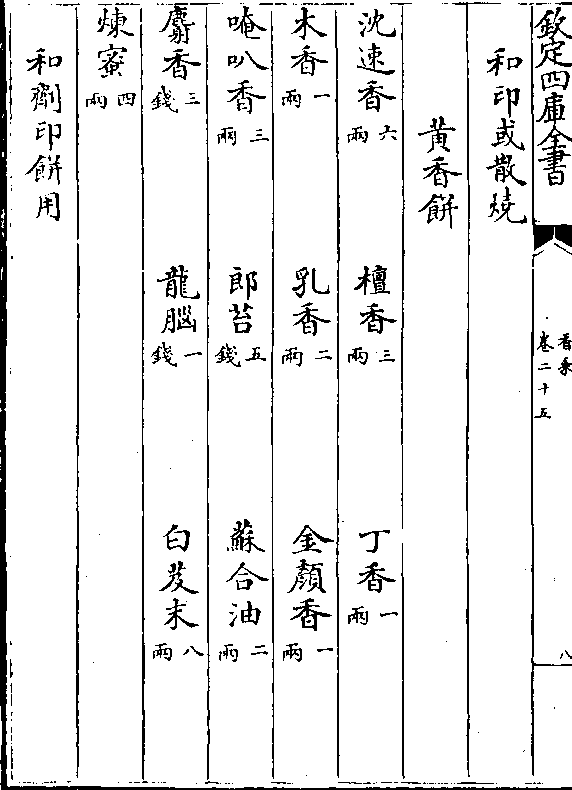 欽定四庫全書
香乘
卷二十五
八
和印或散燒
黃香餅
沈速香六兩 檀香三兩 丁香一兩
木香一兩 乳香二兩 金顏香一兩
唵叭香三兩 郎苔五錢 蘇合油二兩
麝香三錢 龍腦一錢 白芨末八兩
煉蜜四兩
和劑印餅用